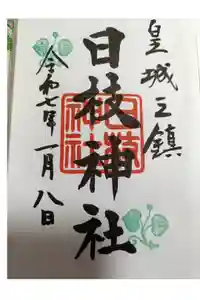 皇城之鎮
日枝神社
令和七年一月八日
日枝神社